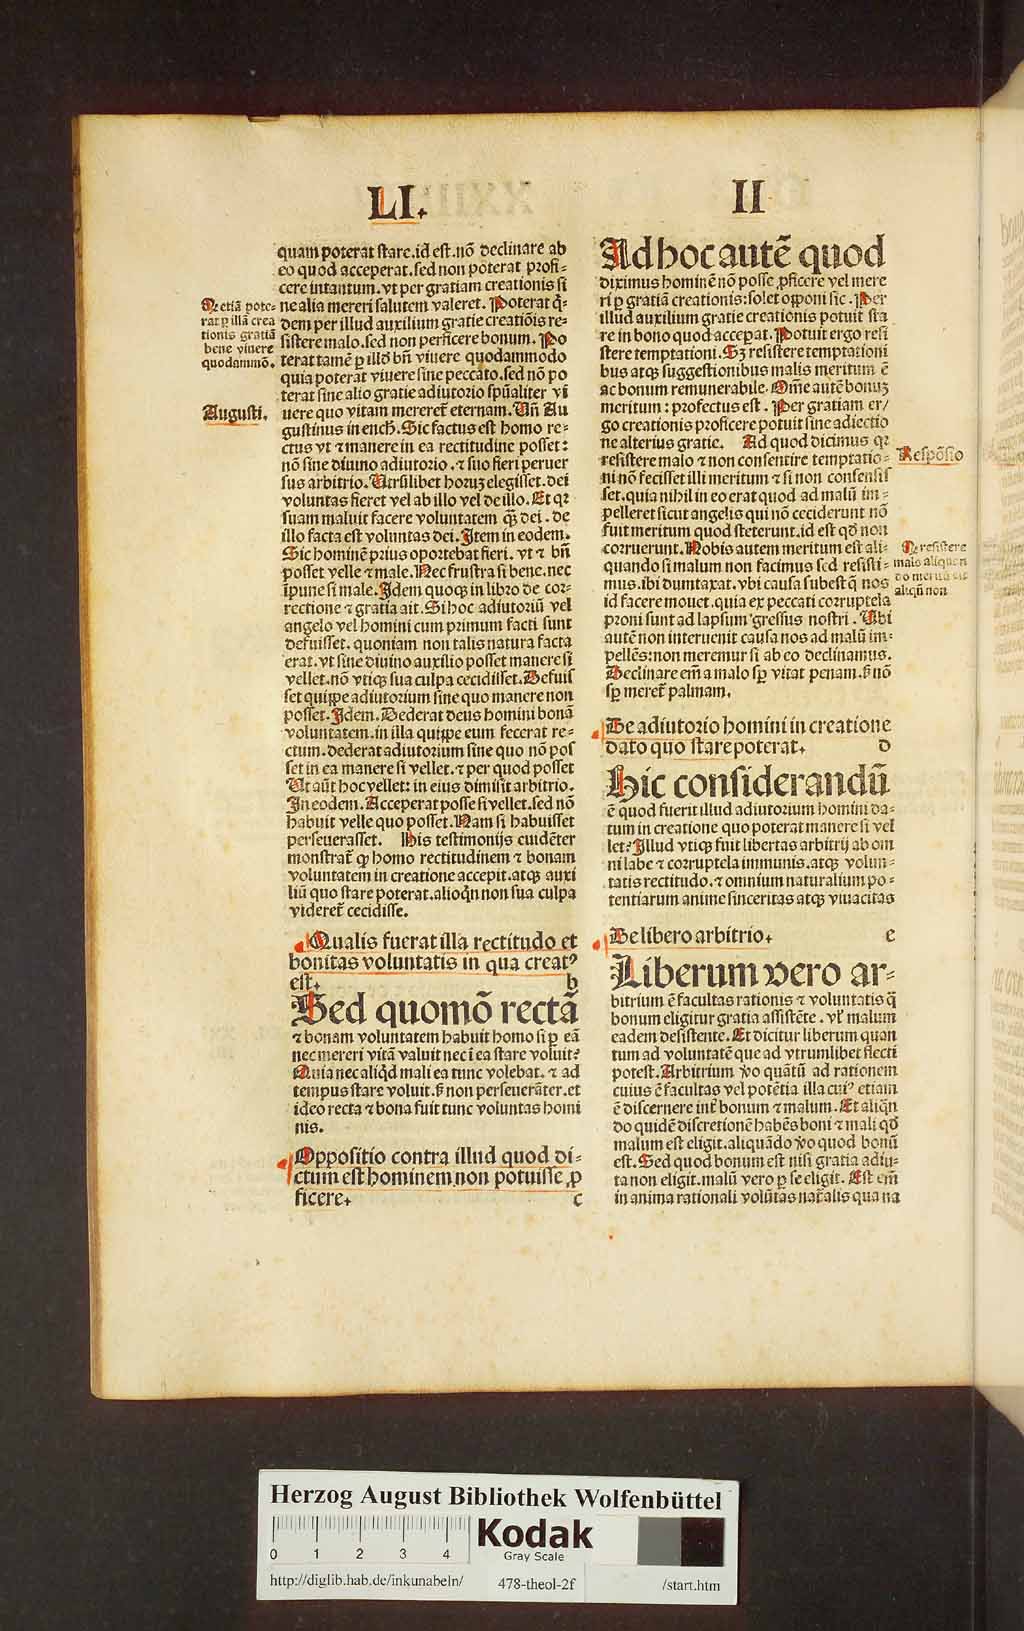 LI.
II
quam poterat stare.id est.nō declinare ab
eo quod acceperat.sed non poterat profi-
cere intantum.vt per gratiam creationis si
ne alia mereri salutem valeret. Poterat q̄-
dem per illud auxilium gratie creatiōis re-
sistere malo.sed non perficere bonum. Po
terat tamē ꝑ illđ bn̄ viuere quodammodo
quia poterat viuere sine peccato.sed nō po
terat sine alio gratie adiutorio spūaliter vi
uere quo vitam mereret̄ eternam. Un̄ Au
gustinus in ench. Sic factus est homo re-
ctus vt ⁊ manere in ea rectitudine posset:
nō sine diuino adiutorio.⁊ suo fieri peruer
sus arbitrio. Utrūlibet horuꝫ elegisset.dei
voluntas fieret vel ab illo vel de illo. Et qꝛ
suam maluit facere voluntatem qȝ dei.de
illo facta est voluntas dei. Item in eodem.
Sic hominē prius oportebat fieri.vt ⁊ bn̄
posset velle ⁊ male. Nec frustra si bene.nec
īpune si male. Idem quoqꝫ in libro de cor-
rectione ⁊ gratia ait. Si hoc adiutoriū vel
angelo vel homini cum primum facti sunt
defuisset.quoniam non talis natura facta
erat.vt sine diuino auxilio posset manere si
vellet.nō vtiqꝫ sua culpa cecidisset. Defuis
set quippe adiutorium sine quo manere non
posset. Idem. Dederat deus homini bonā
voluntatem.in illa quippe eum fecerat re-
ctum.dederat adiutorium sine quo nō pos
set in ea manere si vellet.⁊ per quod posset
Ut aūt hoc vellet: in eius dimisit arbitrio.
In eodem. Acceperat posse si vellet.sed nō
habuit velle quo posset. Nam si habuisset
perseuerasset. His testimonijs euidēter
monstrat̄ ꝙ homo rectitudinem ⁊ bonam
voluntatem in creatione accepit.atqꝫ auxi
liū quo stare poterat.alioqn̄ non sua culpa
videret̄ cecidisse.
Qualis fuerat illa rectitudo et
bonitas voluntatis in qua creatꝰ
est. b
Sed quomō rectā
⁊ bonam voluntatem habuit homo si ꝑ eā
nec mereri vitā valuit nec ī ea stare voluit?
Quia nec aliqđ mali ea tunc volebat.⁊ ad
tempus stare voluit.ſ non perseuerāter.et
ideo recta ⁊ bona fuit tunc voluntas homi
nis.
Oppositio contra illud quod di-
ctum est hominem non potuisse ꝓ
ficere. c
Ꝙ etiā pote-
rat ꝑ illā crea
tionis gratiā
bene viuere
quodammō.
Augusti.
Ad hoc autē quod
diximus hominē nō posse ꝓficere vel mere
ri ꝑ gratiā creationis:solet opponi sic. Per
illud auxilium gratie creationis potuit sta
re in bono quod acceperat. Potuit ergo resi
stere temptationi. Sꝫ resistere temptationi
bus atqꝫ suggestionibus malis meritum ē
ac bonum remunerabile. Om̄e autē bonuꝫ
meritum: profectus est. Per gratiam er/
go creationis proficere potuit sine adiectio
ne alterius gratie. Ad quod dicimus qꝛ
resistere malo ⁊ non consentire temptatio-
ni nō fecisset illi meritum ⁊ si non consensis
set.quia nihil in eo erat quod ad malū im-
pelleret sicut angelis qui nō ceciderunt nō
fuit meritum quod steterunt.id est qđ non
corruerunt. Nobis autem meritum est ali-
quando si malum non facimus sed resisti-
mus.ibi duntaxat.vbi causa subest q̄ nos
id facere mouet.quia ex peccati corruptela
proni sunt ad lapsum gressus nostri. Ubi
autē non interuenit causa nos ad malū im-
pellēs:non meremur si ab eo declinamus.
Declinare em̄ a malo sꝑ vitat penam.ſ nō
sꝑ meret̄ palmam.
De adiutorio homini in creatione
dato quo stare poterat. d
Hic considerandū
ē quod fuerit illud adiutorium homini da-
tum in creatione quo poterat manere si vel
let? Illud vtiqꝫ fuit libertas arbitrij ab om
ni labe ⁊ corruptela immunis.atqꝫ volun-
tatis rectitudo.⁊ omnium naturalium po-
tentiarum anime sinceritas atqꝫ viuacitas
De libero arbitrio. e
Liberum vero ar-
bitrium ē facultas rationis ⁊ voluntatis q̄
bonum eligitur gratia assistēte. vl̓ malum
eadem desistente. Et dicitur liberum quan
tum ad voluntatē que ad vtrumlibet flecti
potest. Arbitrium v̓o quātū ad rationem
cuius ē facultas vel potētia illa cuiꝰ etiam
ē discernere int̓ bonum ⁊ malum. Et aliqn̄
do quidē discretionē habēs boni ⁊ mali qđ
malum est eligit.aliquādo v̓o quod bonū
est. Sed quod bonum est nisi gratia adiu-
ta non eligit.malū vero ꝑ se eligit. Est em̄
in anima rationali volūtas nat̓alis qua na
Respōsio
Ꝙ resistere
malo aliquan
do meritū sit
aliqn̄ non
Herzog August Bibliothek Wolfenbüttel
0 1 2 3 4
Kodak
Gray Scale
http://diglib.hab.de/inkunabeln/ 478-theol-2f /start.htm